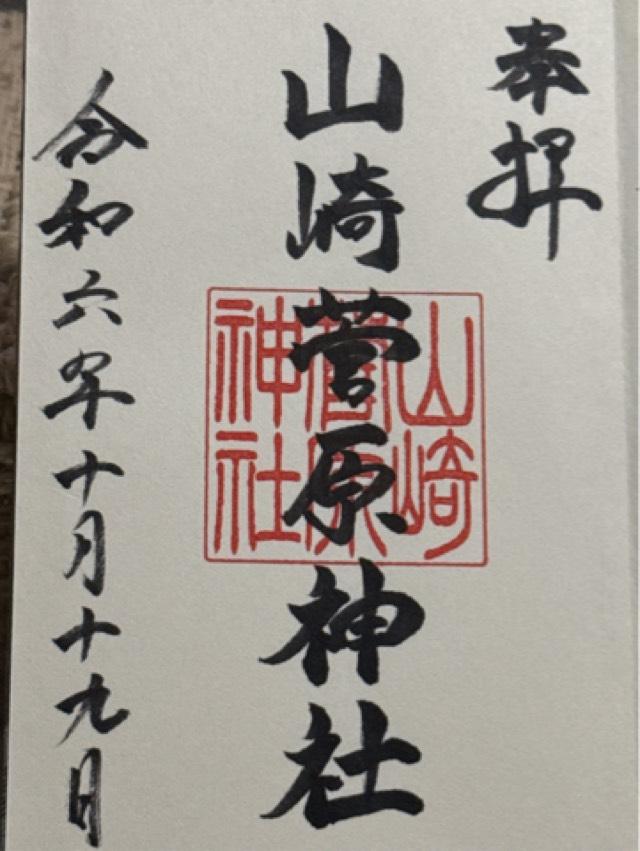 奉拝
山崎菅原神社
山崎
菅原
神社
令和六年十月十九日